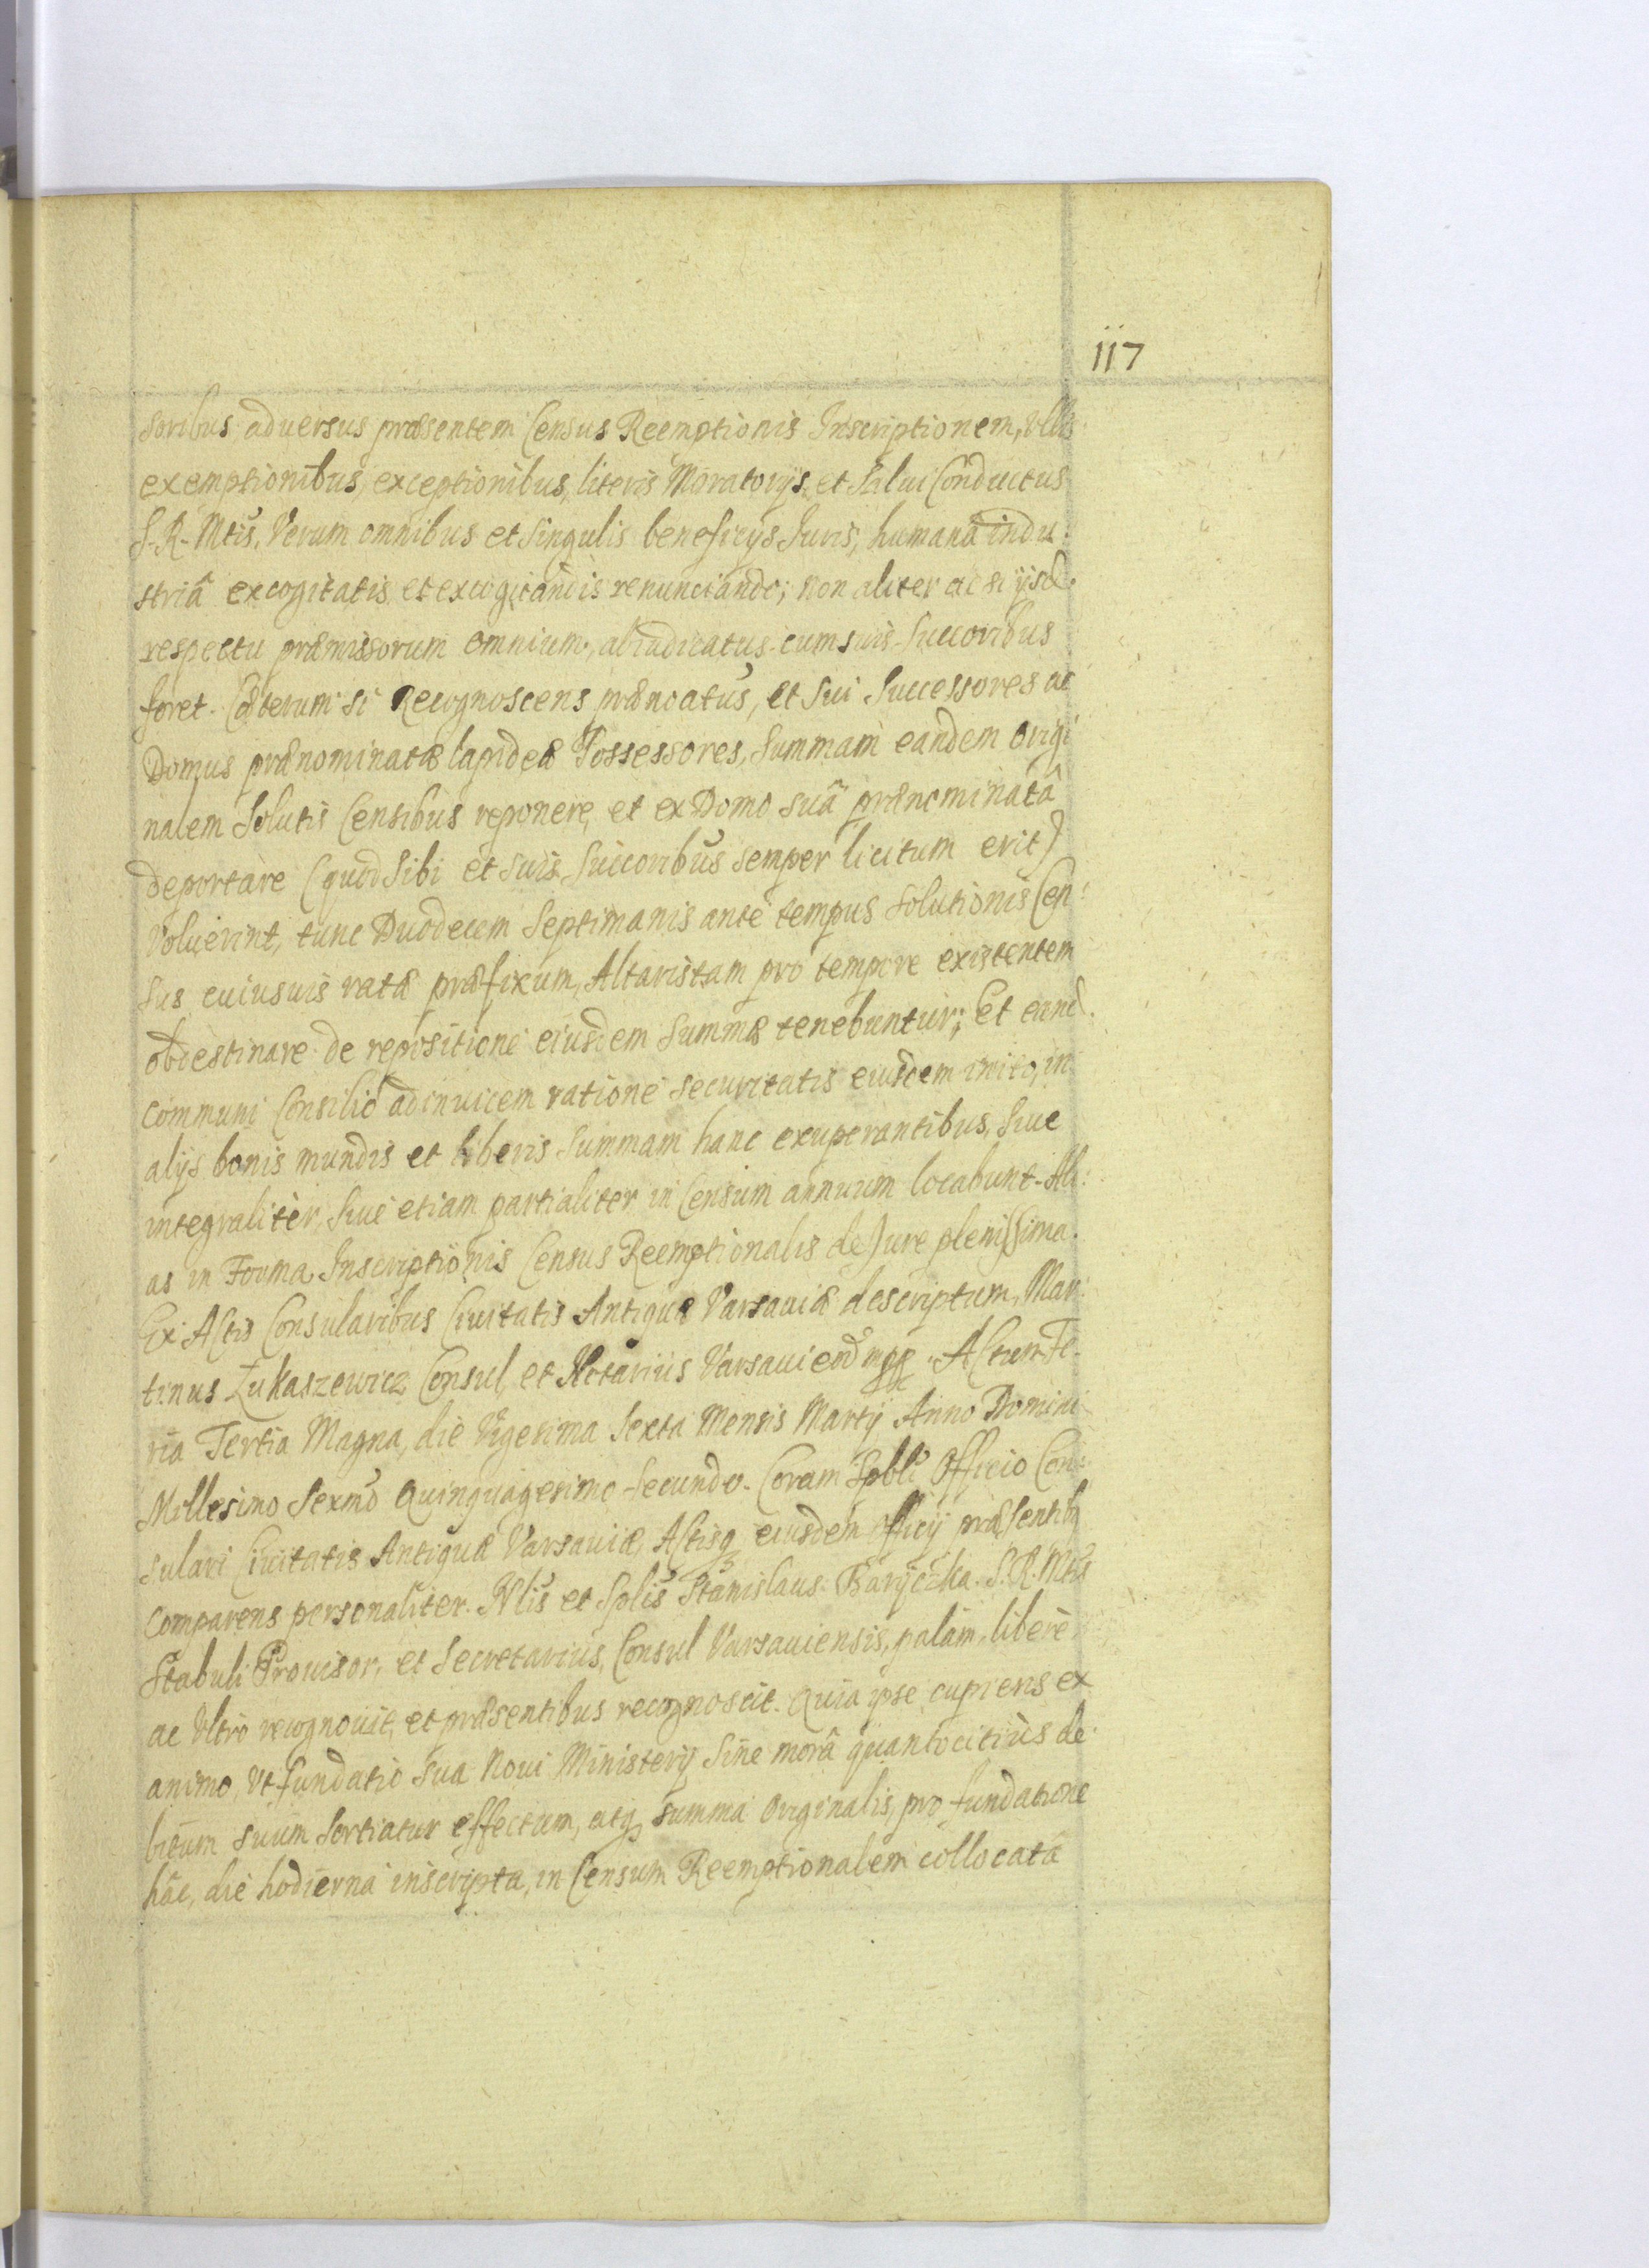 117
soribus aduersus præsentem Census Reemptionis Inscriptionem, vllis
exemptionibus, exceptionibus, literis Moratorijs et Salui Conductus
S. R. Mtis. Verum omnibus et singulis beneficijs Juris, humanâ indu:
striâ excogitatis et excogitandis renunciando; non aliter ac si ijsd.
respectu præmissorum omnium, abiudicatus cum suis Succoribus
foret. Cæterum si Recognoscens prænoatus, et sui Successores ac
Domus prænominatæ lapideæ Possessores, Summam eandem origi
nalem Solutis Censibus reponere, et ex Domo suâ prænominatâ
deportare (quod Sibi et suis Succoribus semper licitum erit)
Voluerint, tunc Duodecem Septimanis ante tempus solutionis Cen:
sus cuiusuis ratæ præfixum, Altaristam pro tempore existentem
obdestinare de repositione eiusdem Summæ tenebuntur; Et eand.
communi Consilio adinuicem ratione securitatis eiusdem inito, in
alijs bonis mundis et liberis Summam hanc exuperantibus, Siue
integraliter, Siue etiam partialiter in Censum annuum locabunt. Ali:
as in Forma Inscriptionis Census Reemptionalis de Jure plenissima.
Ex Actis Consularibus Ciuitatis Antiquæ Varsauiæ descriptum, Mar:
tinus Łukaszewicz Consul, et Notarius Varsauien mpp. Actum Fe-
ria Tertia Magna, die Vigesima Sexta Mensis Martij Anno Domini
Millesimo Sexmo Quinquagesimo Secundo. Coram Spbli Officio Con:
sulari Ciuitatis Antiquæ Varsauiæ, Actisq eiusdem officij præsentibs
Comparens personaliter. Nlis et Splis Stanislaus Baryczka S. R. Mtis
Stabuli Prouisor, et Secretarius, Consul Varsauiensis, palàm, liberè
ac Vltrò recognouit, et præsentibus recognoscit. Quia ipse cupiens ex
animo, Vt fundatio sua Noui Ministerij Sine morâ quantocitiùs de
bitum suum Sortiatur effectum, atq summa Originalis, pro fundatione
hâc, die hodierna inscripta, in Censum Reemptionalem collocata